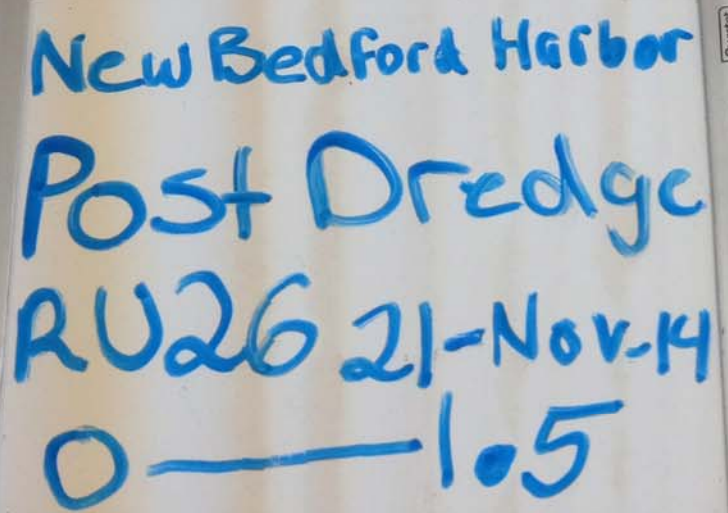 New Bedford Harbor
Post Dredge
RU26 21-Nov-14
0 — 1.5